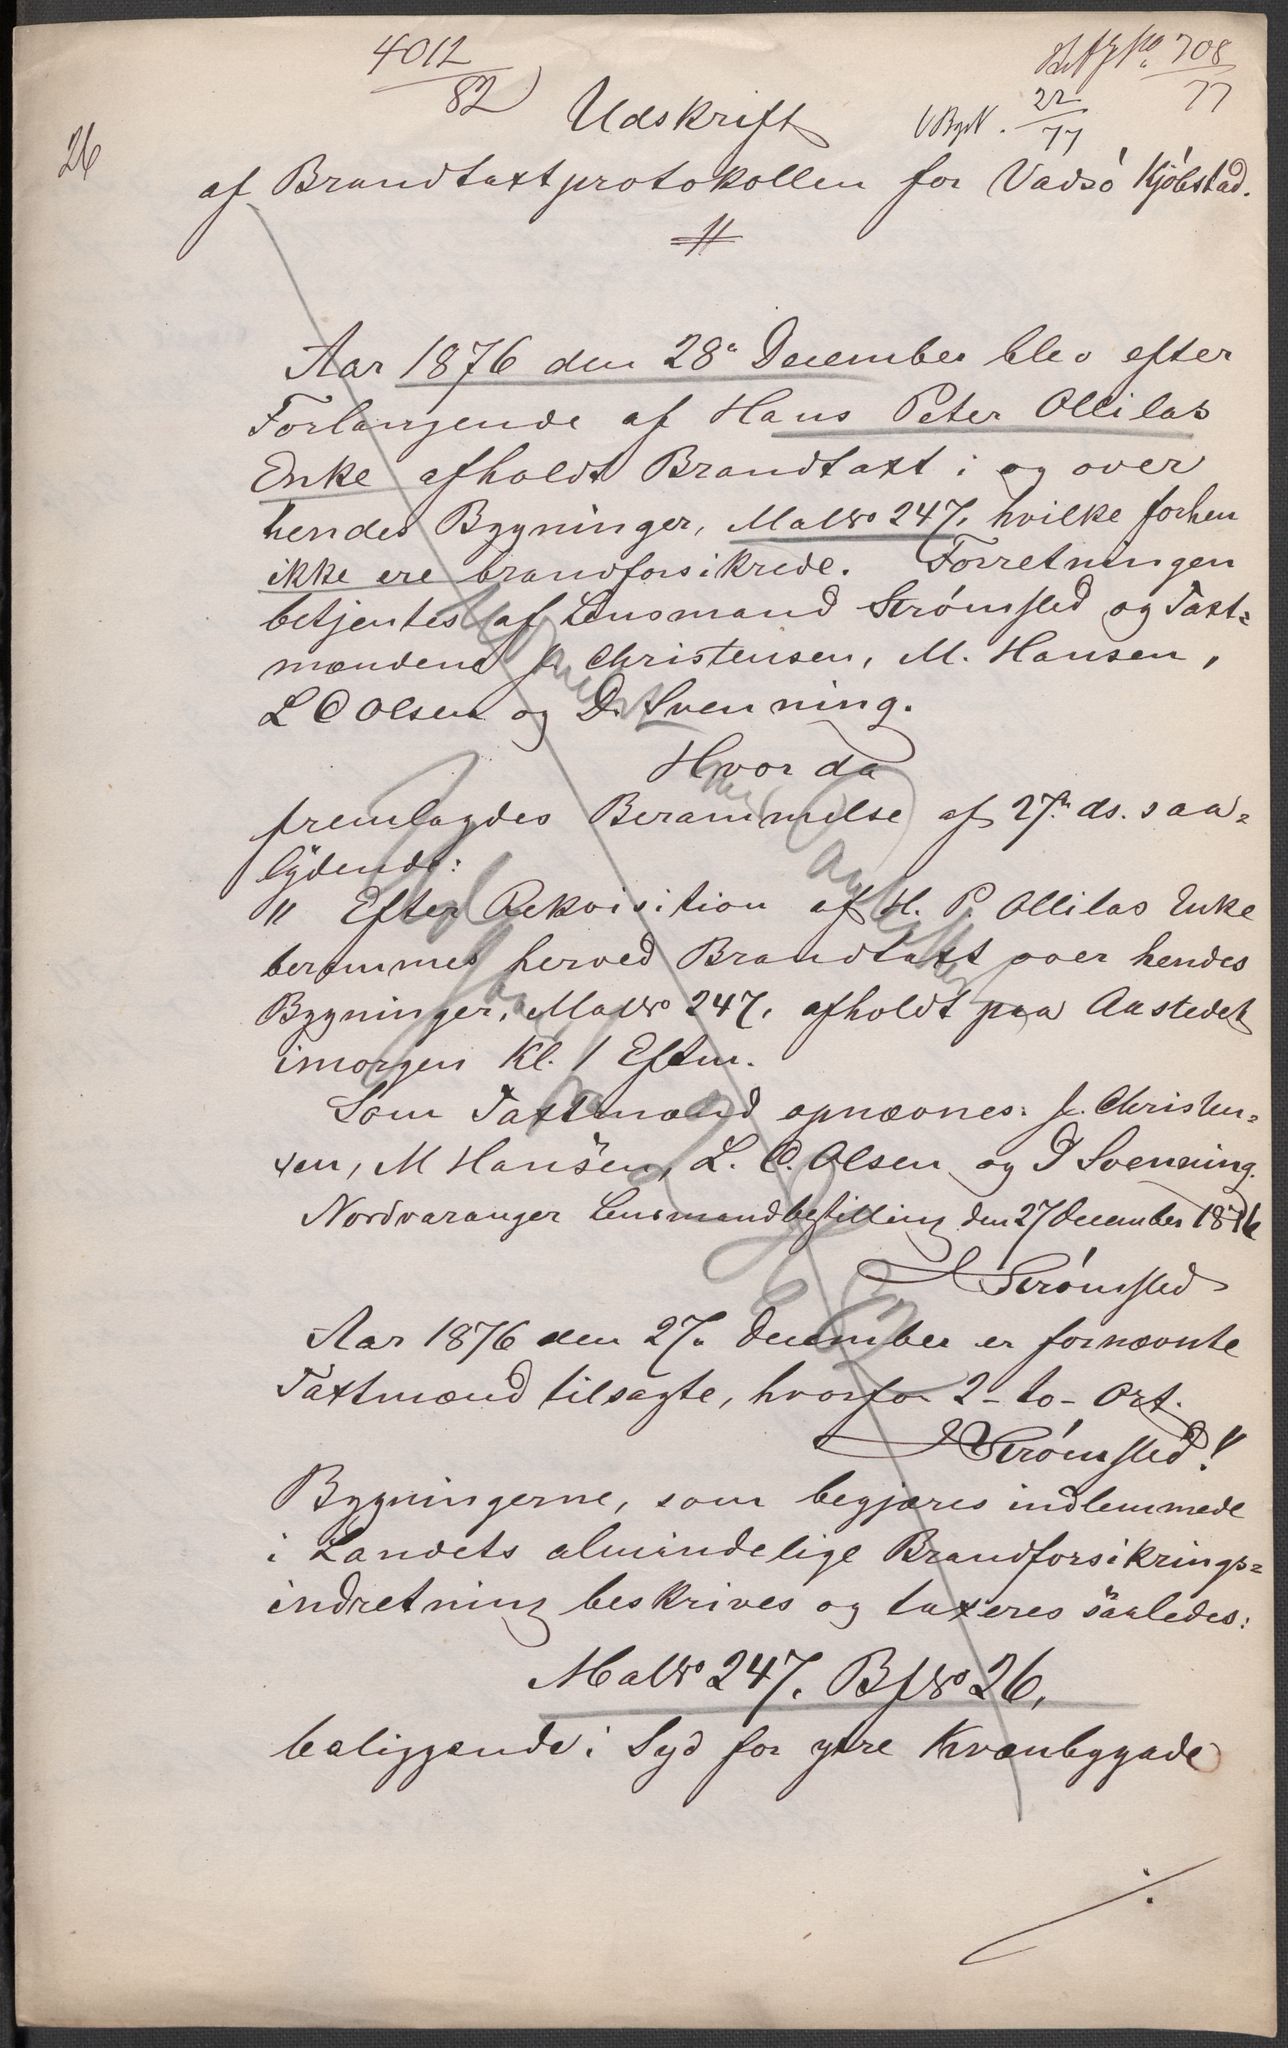 4012
82
708
77
22
77
26
Udskrift
af Brandtaxtprotokollen for Vadsö Kjöbstad.
Aar 1876 den 28. December blev efter
Forlangende af Hans Peter Ollilas
Enke afholdt Brandtaxt i og over
hendes Bygninger, MatNo 247, hvilke forhen
ikke ere brandforsikrede. Forretningen
betjentes af Lensmand Strömsted og Taxt=
mændene J. Christensen, M. Hansen,
L O Olsen og D. Svenning.
Hvor da
fremlagdes Berammelse af 27. ds. saa=
lydende:
" Efter Rekvisition af H. P. Ollilas Enke
berammes herved Brandtaxt over hendes
Bygninger, MatNo 247, afholdt paa Aastedet
imorgen Kl. 1 Eftm.
Som Taxtmænd opnævnes: J. Christen=
sen, M Hansen, L. O. Olsen og D Svenning.
Nordvaranger Lensmandbestilling den 27 December 1876
Strömsted
Aar 1876 den 27. December er fornævnte
Taxtmænd tilsagte, hvorfor 2 - to - Ort.
Strömsted."
Bygningerne, som begjæres indlemmede
i Landets almindelige Brandforsikrings=
indretning beskrives og taxeres saaledes:
MatNo 247. BfNo 26,
beliggende i Syd for ytre Kvænbygade